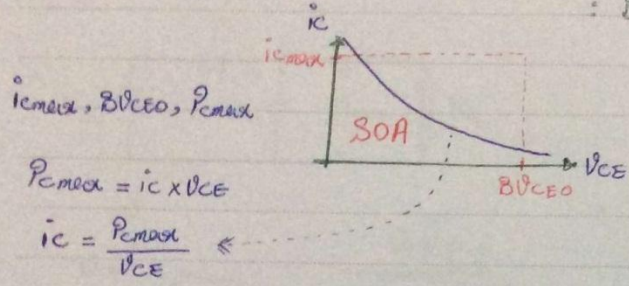 :
ic
icmax
icmax, BVCEO, Pcmax
SOA
VCE
BVCEO
Pcmax = ic x VCE
ic = Pcmax / VCE